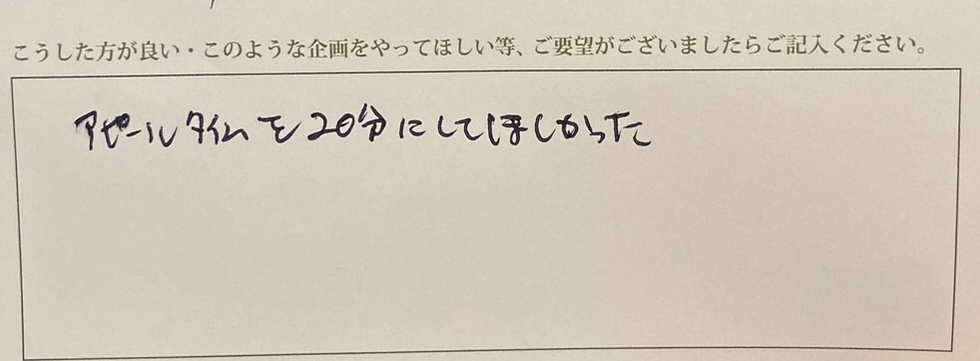 こうした方が良い・このような企画をやってほしい等、ご要望がございましたらご記入ください。
アピールタイムを20分にしてほしかった